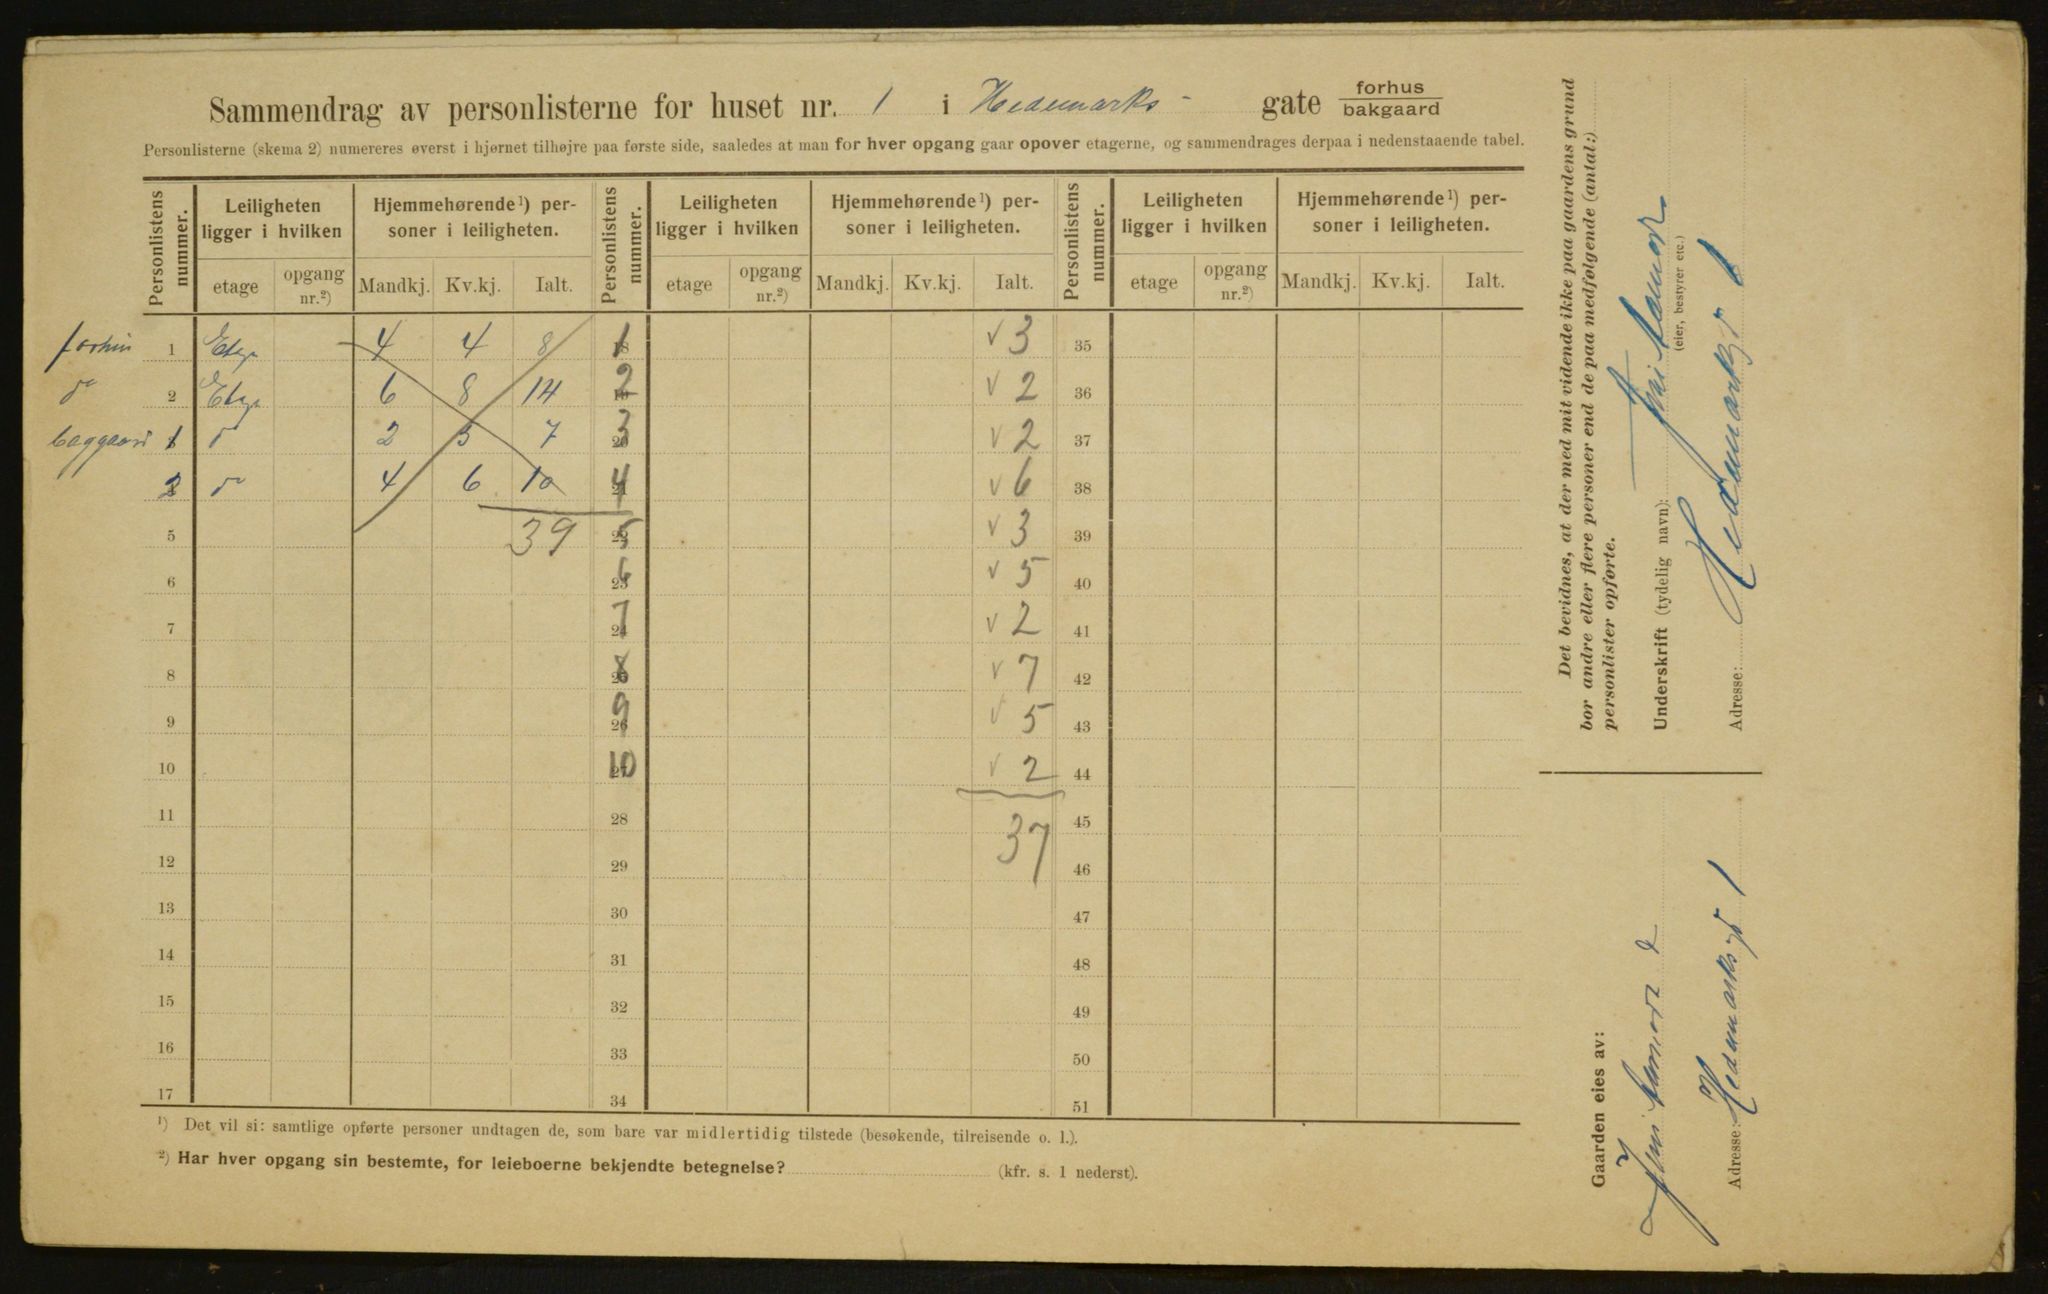 Sammendrag av personlisterne for huset nr. 1 i Hedemarks- gate forhus
bakgaard
Personlisterne (skema 2) numereres øverst i hjørnet tilhøjre paa første side, saaledes at man for hver opgang gaar opover etagerne, og sammendrages derpaa i nedenstaaende tabel.
Personlistens nummer. Leiligheten ligger i hvilken Hjemmehørende ¹) personer i leiligheten. Personlistens nummer. Leiligheten ligger i hvilken Hjemmehørende ¹) personer i leiligheten. Personlistens nummer. Leiligheten ligger i hvilken Hjemmehørende ¹) personer i leiligheten.
etage opgang nr.²) Mandkj. Kv.kj. Ialt. etage opgang nr.²) Mandkj. Kv.kj. Ialt. etage opgang nr.²) Mandkj. Kv.kj. Ialt.
1 Etage 4 4 8 1 v 3 35
2 Etage 6 8 14 2 v 2 36
1 2 5 7 3 v 2 37
2 4 6 10 4 v 6 38
5 39 5 v 3 39
6 6 v 5 40
7 7 v 2 41
8 8 v 7 42
9 9 v 5 43
10 10 v 2 44
11 28 37 45
12 29 46
13 30 47
14 31 48
15 32 49
16 33 50
17 34 51
¹) Det vil si: samtlige opførte personer undtagen de, som bare var midlertidig tilstede (besøkende, tilreisende o. l.).
²) Har hver opgang sin bestemte, for leieboerne bekjendte betegnelse? (kfr. s. 1 nederst).
Det bevidnes, at der med mit vidende ikke paa gaardens grund
bor andre eller flere personer end de paa medfølgende (antal:)
personlister opførte.
Underskrift (tydelig navn):
(eier, bestyrer etc.)
Adresse: Hedemarksgt 1
Gaarden eies av:
Adresse: Hedemarksgt 1